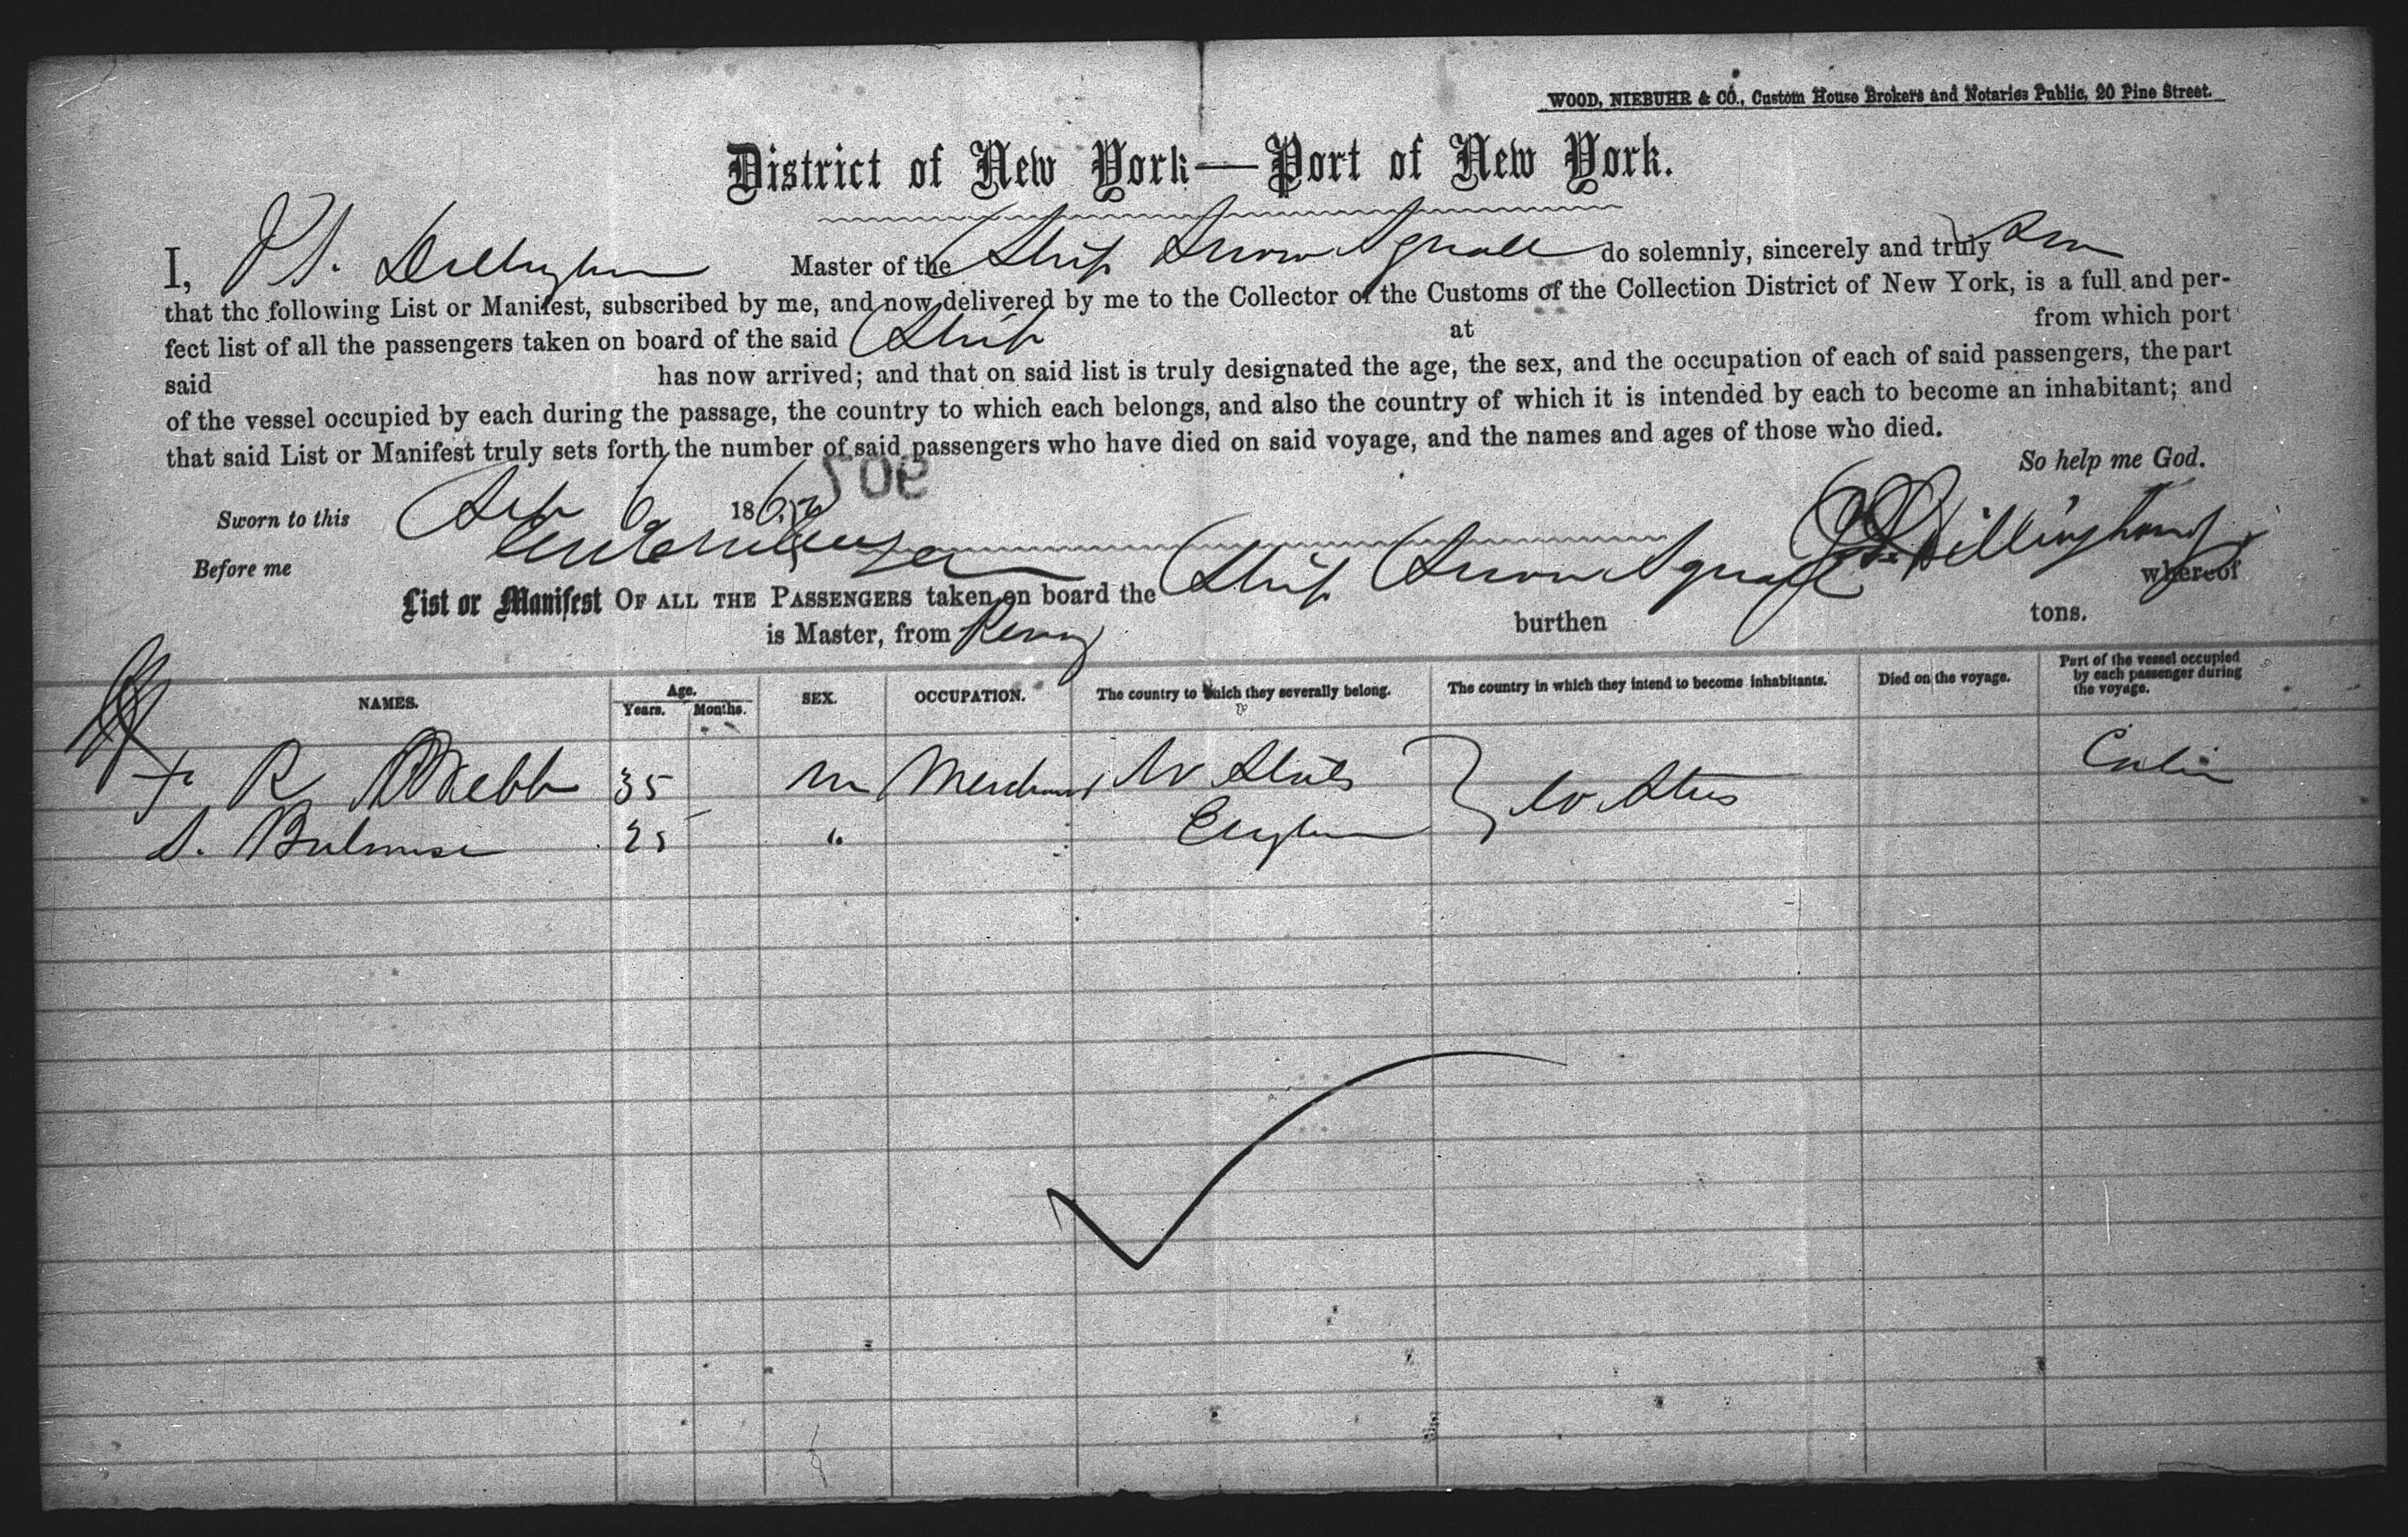 WOOD, NIEBUHR & CO., Custom House Brokers and Notaries Public, 20 Pine Street.
District of New York—Port of New York.
I, P S. Dillingham Master of the Ship Snow Squall do solemnly, sincerely and truly
that the following List or Manifest, subscribed by me, and now delivered by me to the Collector of the Customs of the Collection District of New York, is a full and per-
fect list of all the passengers taken on board of the said Ship at from which port
said has now arrived; and that on said list is truly designated the age, the sex, and the occupation of each of said passengers, the part
of the vessel occupied by each during the passage, the country to which each belongs, and also the country of which it is intended by each to become an inhabitant; and
that said List or Manifest truly sets forth the number of said passengers who have died on said voyage, and the names and ages of those who died.
So help me God.
905
Sworn to this Sep 6 1862
Dillingham
Before me
List or Manifest OF ALL THE PASSENGERS taken on board the Ship Snow Squall whereof
is Master, from Penang burthen tons.
NAMES. Age. Years. Months. SEX. OCCUPATION. The country to which they severally belong. The country in which they intend to become inhabitants. Died on the voyage. Part of the vessel occupied by each passenger during the voyage.
F R Webb 35 m Merchant U States U States Cabin
S. 25 " England